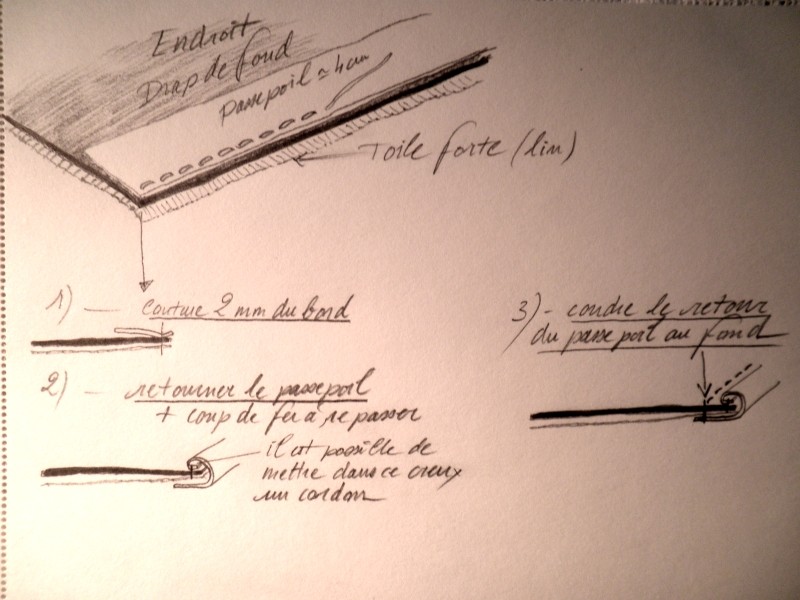 Endroit
Drap de fond
passepoil ≈ 4cm
Toile forte (lin)
1) — Couture 2 mm du bord
2) — retourner le passepoil
+ coup de fer à repasser
il est possible de
mettre dans ce creux
un cordon
3) - coudre le retour
du passepoil au fond